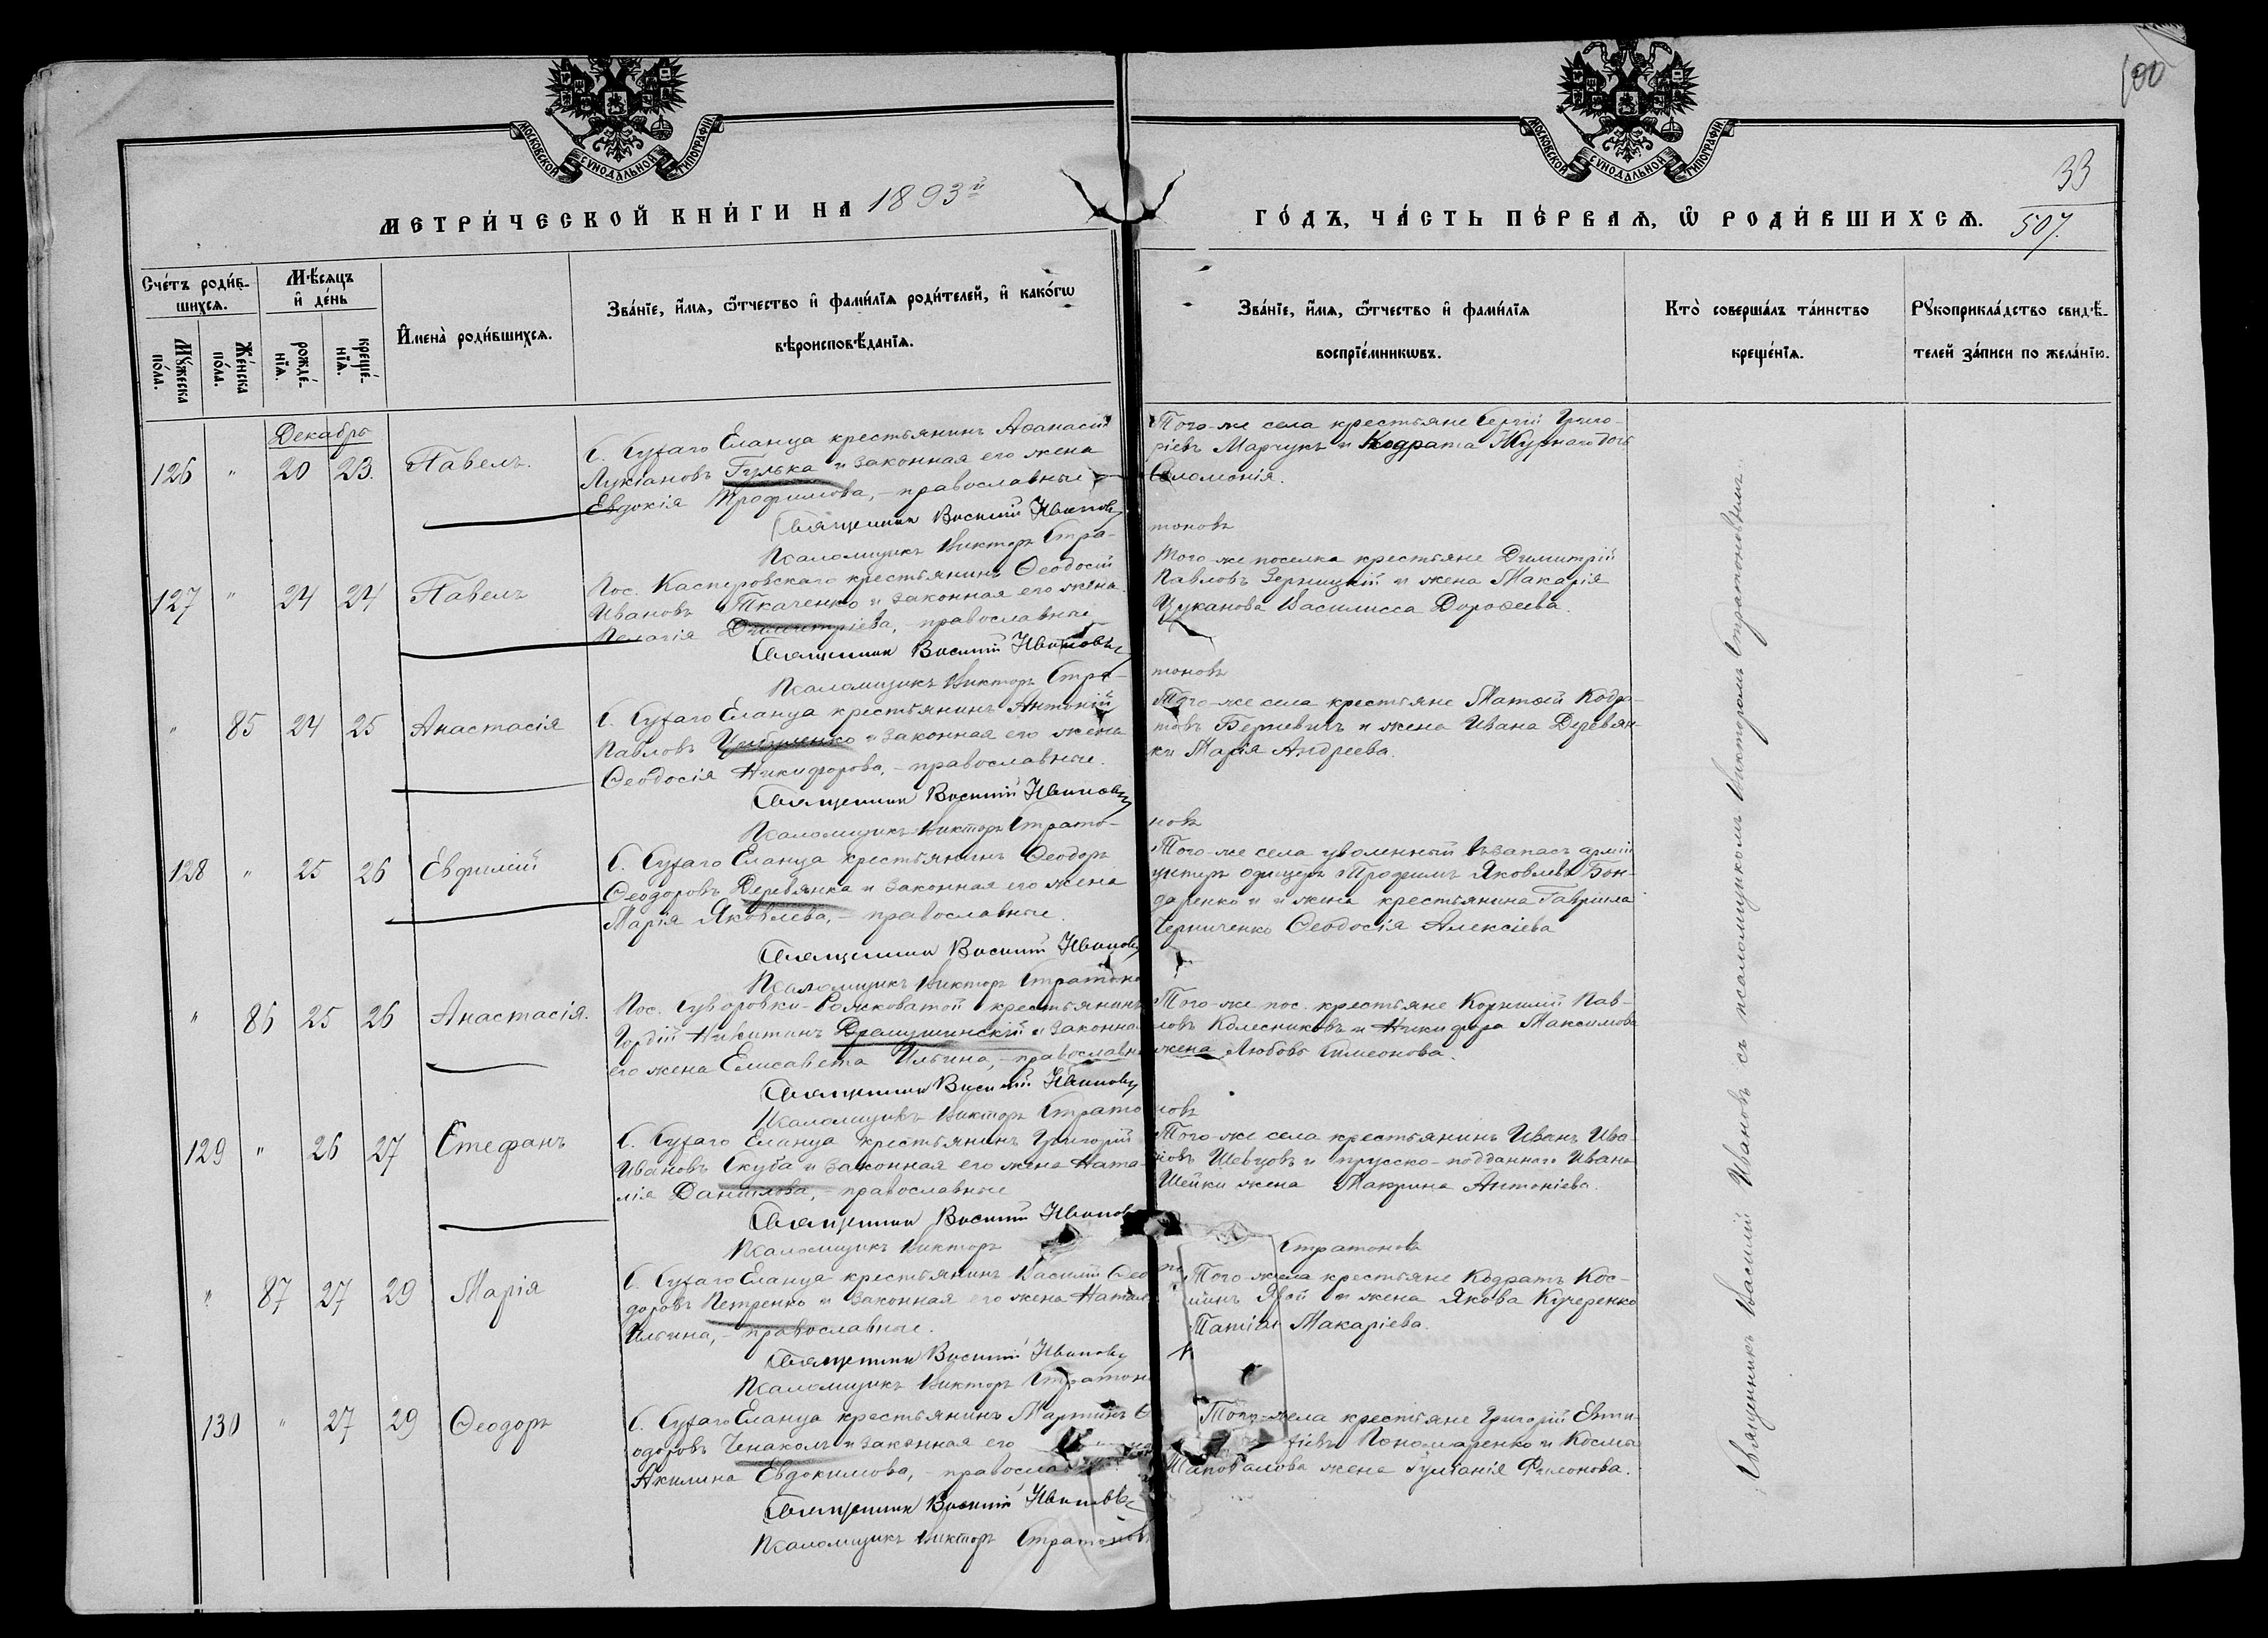 100
МОСКОВСКОЙ СУНОДАЛЬНОЙ ТИПОГРАФІИ.
МОСКОВСКОЙ СУНОДАЛЬНОЙ ТИПОГРАФІИ.
33
507.
МЕТРИ́ЧЕСКОЙ КНИ́ГИ НА 1893й
ГО́ДЪ, ЧА́СТЬ ПЕ́РВАѦ, Ѡ РОДИ́ВШИХСѦ.
Сче́тъ роди́в-
шихсѧ.
Мꙋ́жеска по́ла.
Же́нска по́ла.
Мѣ́сѧцъ
и҆ де́нь
рожде́-
нїѧ.
креще́-
нїѧ.
И҆мена̀ роди́вшихсѧ.
Зва́нїе, и҆́мѧ, ѻ҆́тчество и҆ фами́лїѧ роди́телей, и҆ како́гѡ
вѣроисповѣ́данїѧ.
Зва́нїе, и҆́мѧ, ѻ҆́тчество и҆ фами́лїѧ
воспрїе́мникѡвъ.
Кто̀ соверша́лъ та́инство
креще́нїѧ.
Рꙋкоприкла́дство свидѣ́-
телей за́писи по жела́нїю.
Декабрь
126 " 20 23. Павелъ.
С. Сухаго Еланца крестьянинъ Аѳанасій
Лукіановъ Гулька и законная его жена
Евдокія Трофимова, - православные
Того-же села крестьяне Сергій Григо-
ріевъ Марчукъ и Кодрата Журнаго дочь
Соломонія.
Священник Василій Ивановъ
Псаломщикъ Викторъ Стра-
тоновъ
127 " 24 24 Павелъ
Пос. Касперовскаго крестьянинъ Ѳеодосій
Ивановъ Ткаченко и законная его жена
Пелагія Димитріева, - православные
Того же поселка крестьяне Димитрій
Павловъ Зерницкій и жена Макарія
Цуканова Василисса Дороѳеева.
Священник Василій Ивановъ
Псаломщикъ Викторъ Стра-
тоновъ
" 85 24 25 Анастасія
С. Сухаго Еланца крестьянинъ Антоній
Павловъ и законная его жена
Ѳеодосія Никифорова, - православные.
Того-же села крестьяне Матѳей Кодра-
товъ и жена Ивана Деревян-
ки Марія Андреева.
Священник Василій Ивановъ
Псаломщикъ Викторъ Страто-
новъ
128 " 25 26 Евфимій
С. Сухаго Еланца крестьянинъ Ѳеодоръ
Ѳеодоровъ Деревянка и законная его жена
Марія Яковлева, - православные.
Того-же села уволенный въ запасъ арміи
унтеръ офицеръ Трофимъ Яковлевъ Бон-
даренко и жена крестьянина Гавриила
Черниченко Ѳеодосія Алексіева
Священник Василій Ивановъ
Псаломщикъ Викторъ Стратоно
" 86 25 26 Анастасія.
Пос. Суворовки-Рожковатой крестьянинъ
Гордій Никитинъ и законная
его жена Елисавета Ильина, - православн
Того-же пос. крестьяне Корнилій Пав-
ловъ Колесниковъ и Никифора Максимова
жена Любовь Симеонова.
Священник Василій Ивановъ
Псаломщикъ Викторъ Страто
новъ
129 " 26 27 Стефанъ
С. Сухаго Еланца крестьянинъ Григорій
Ивановъ Скуба и законная его жена Ната-
лія Данилова, - православные
Того-же села крестьянинъ Иванъ Ива-
новъ Шевцовъ и прусско-подданнаго Ивана
Шейки жена Макрина Антоніева.
Священник Василій Ивановъ
Псаломщикъ Викторъ
Стратоновъ
" 87 27 29 Марія
С. Сухаго Еланца крестьянинъ Василій Ѳео
доровъ Петренко и законная его жена Натал
Ильина, - православные.
Того-же села крестьяне Кодратъ Кос-
минъ и жена Якова Кучеренко
Макаріева.
Священник Василій Ивановъ
Псаломщикъ Викторъ Стратон
130 " 27 29 Ѳеодоръ
С. Сухаго Еланца крестьянинъ Мартинъ Ѳ
одоровъ и законная его
Акилина Евдокимова, - православ
села крестьяне Григорій Евти-
фіевъ Пономаренко и Космы
Шаповалова жена Іуліанія Филонова.
Священник Василій Ивановъ
Псаломщикъ Викторъ Стратоновъ
Священникъ Василій Ивановъ съ псаломщикомъ Викторомъ Стратоновымъ